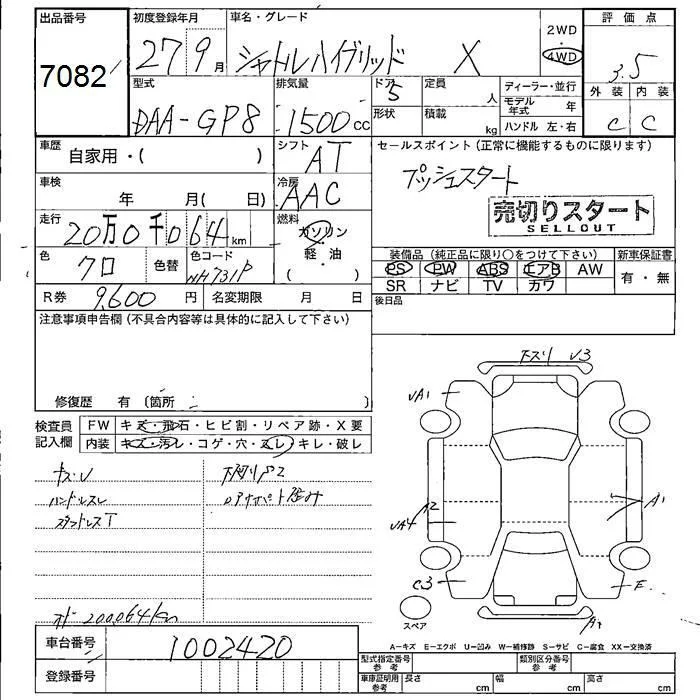 出品番号
7082
初度登録年月
27 9 月
車名・グレード
シャトルハイブリッド X
2WD
・
4WD
評価点
3.5
外装 内装
C C
型式
DAA-GP8
排気量
1500 cc
ドア
5
形状
定員
人
積載
kg
ディーラー・並行
モデル年式 年
ハンドル 左・右
車歴
自家用・( )
シフト
AT
セールスポイント(正常に機能するものに限ります)
プッシュスタート
売切りスタート
SELLOUT
車検
年 月( 日)
冷房
AAC
走行
20万0千064km
燃料
ガソリン
・
軽・油
( )
色
クロ
色替
色コード
NH731P
装備品(純正品に限り○をつけて下さい)
PS PW ABS エアB AW
SR ナビ TV カワ
新車保証書
有・無
R券 9,600 円
名変期限 月 日
後日品
注意事項申告欄(不具合内容等は具体的に記入して下さい)
修復歴 有〔箇所 〕
検査員
記入欄
FW キズ・飛石・ヒビ割・リペア跡・X要
内装 キズ・汚レ・コゲ・穴・スレ・キレ・破レ
キズU
ハンドルスレ
スタッドレスT
下廻りP2
ロアサポート歪み
オド 200,064km
下スリ U3
UA1
A2
UA4
C3
A1
E
スペア
A-キズ E-エクボ U-凹み W-補修跡 S-サビ C-腐食 XX-交換済
車台番号
1002420
登録番号
型式指定番号
参考
類別区分番号
参考
車庫証明用
参考
長さ cm
幅 cm
高さ cm